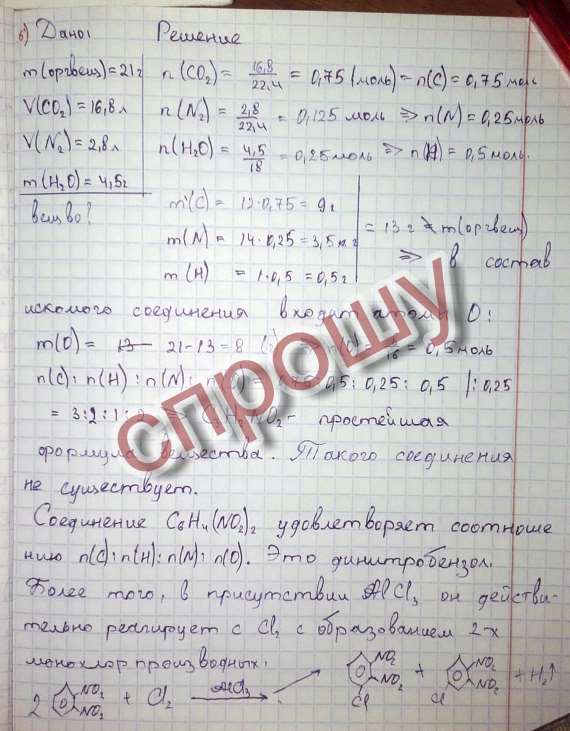 6) Дано: Решение
m(оргвещ)=21г n(CO₂)= 16,8/22,4 = 0,75 (моль) = n(C) = 0,75 моль
V(CO₂)=16,8л n(N₂)= 2,8/22,4 = 0,125 моль ⇒ n(N) = 0,25моль
V(N₂)=2,8л n(H₂O)= 4,5/18 = 0,25моль ⇒ n(H) = 0,5 моль.
m(H₂O)=4,5г
вещ-во? m(C) = 12·0,75 = 9г
m(N) = 14·0,25 = 3,5 г = 13 г ≠ m(оргвещ)
m(H) = 1·0,5 = 0,5г ⇒ в состав
искомого соединения входят атомы O:
m(O) = 21-13 = 8 = 0,5моль
n(C) : n(H) : n(N) : n(O) = 0,75 : 0,5 : 0,25 : 0,5 |: 0,25
= 3:2:1:2 ⇒ C₃H₂NO₂ - простейшая
формула вещества. Такого соединения
не существует.
Соединение C₆H₄(NO₂)₂ удовлетворяет соотноше
нию n(C):n(H):n(N):n(O). Это динитробензол.
Более того, в присутствии AlCl₃ он действи-
тельно реагирует с Cl₂ с образованием 2-х
монохлорпроизводных:
2 NO₂ NO₂ + Cl₂ AlCl₃ → NO₂ NO₂ Cl + NO₂ NO₂ Cl + H₂↑
спрошу